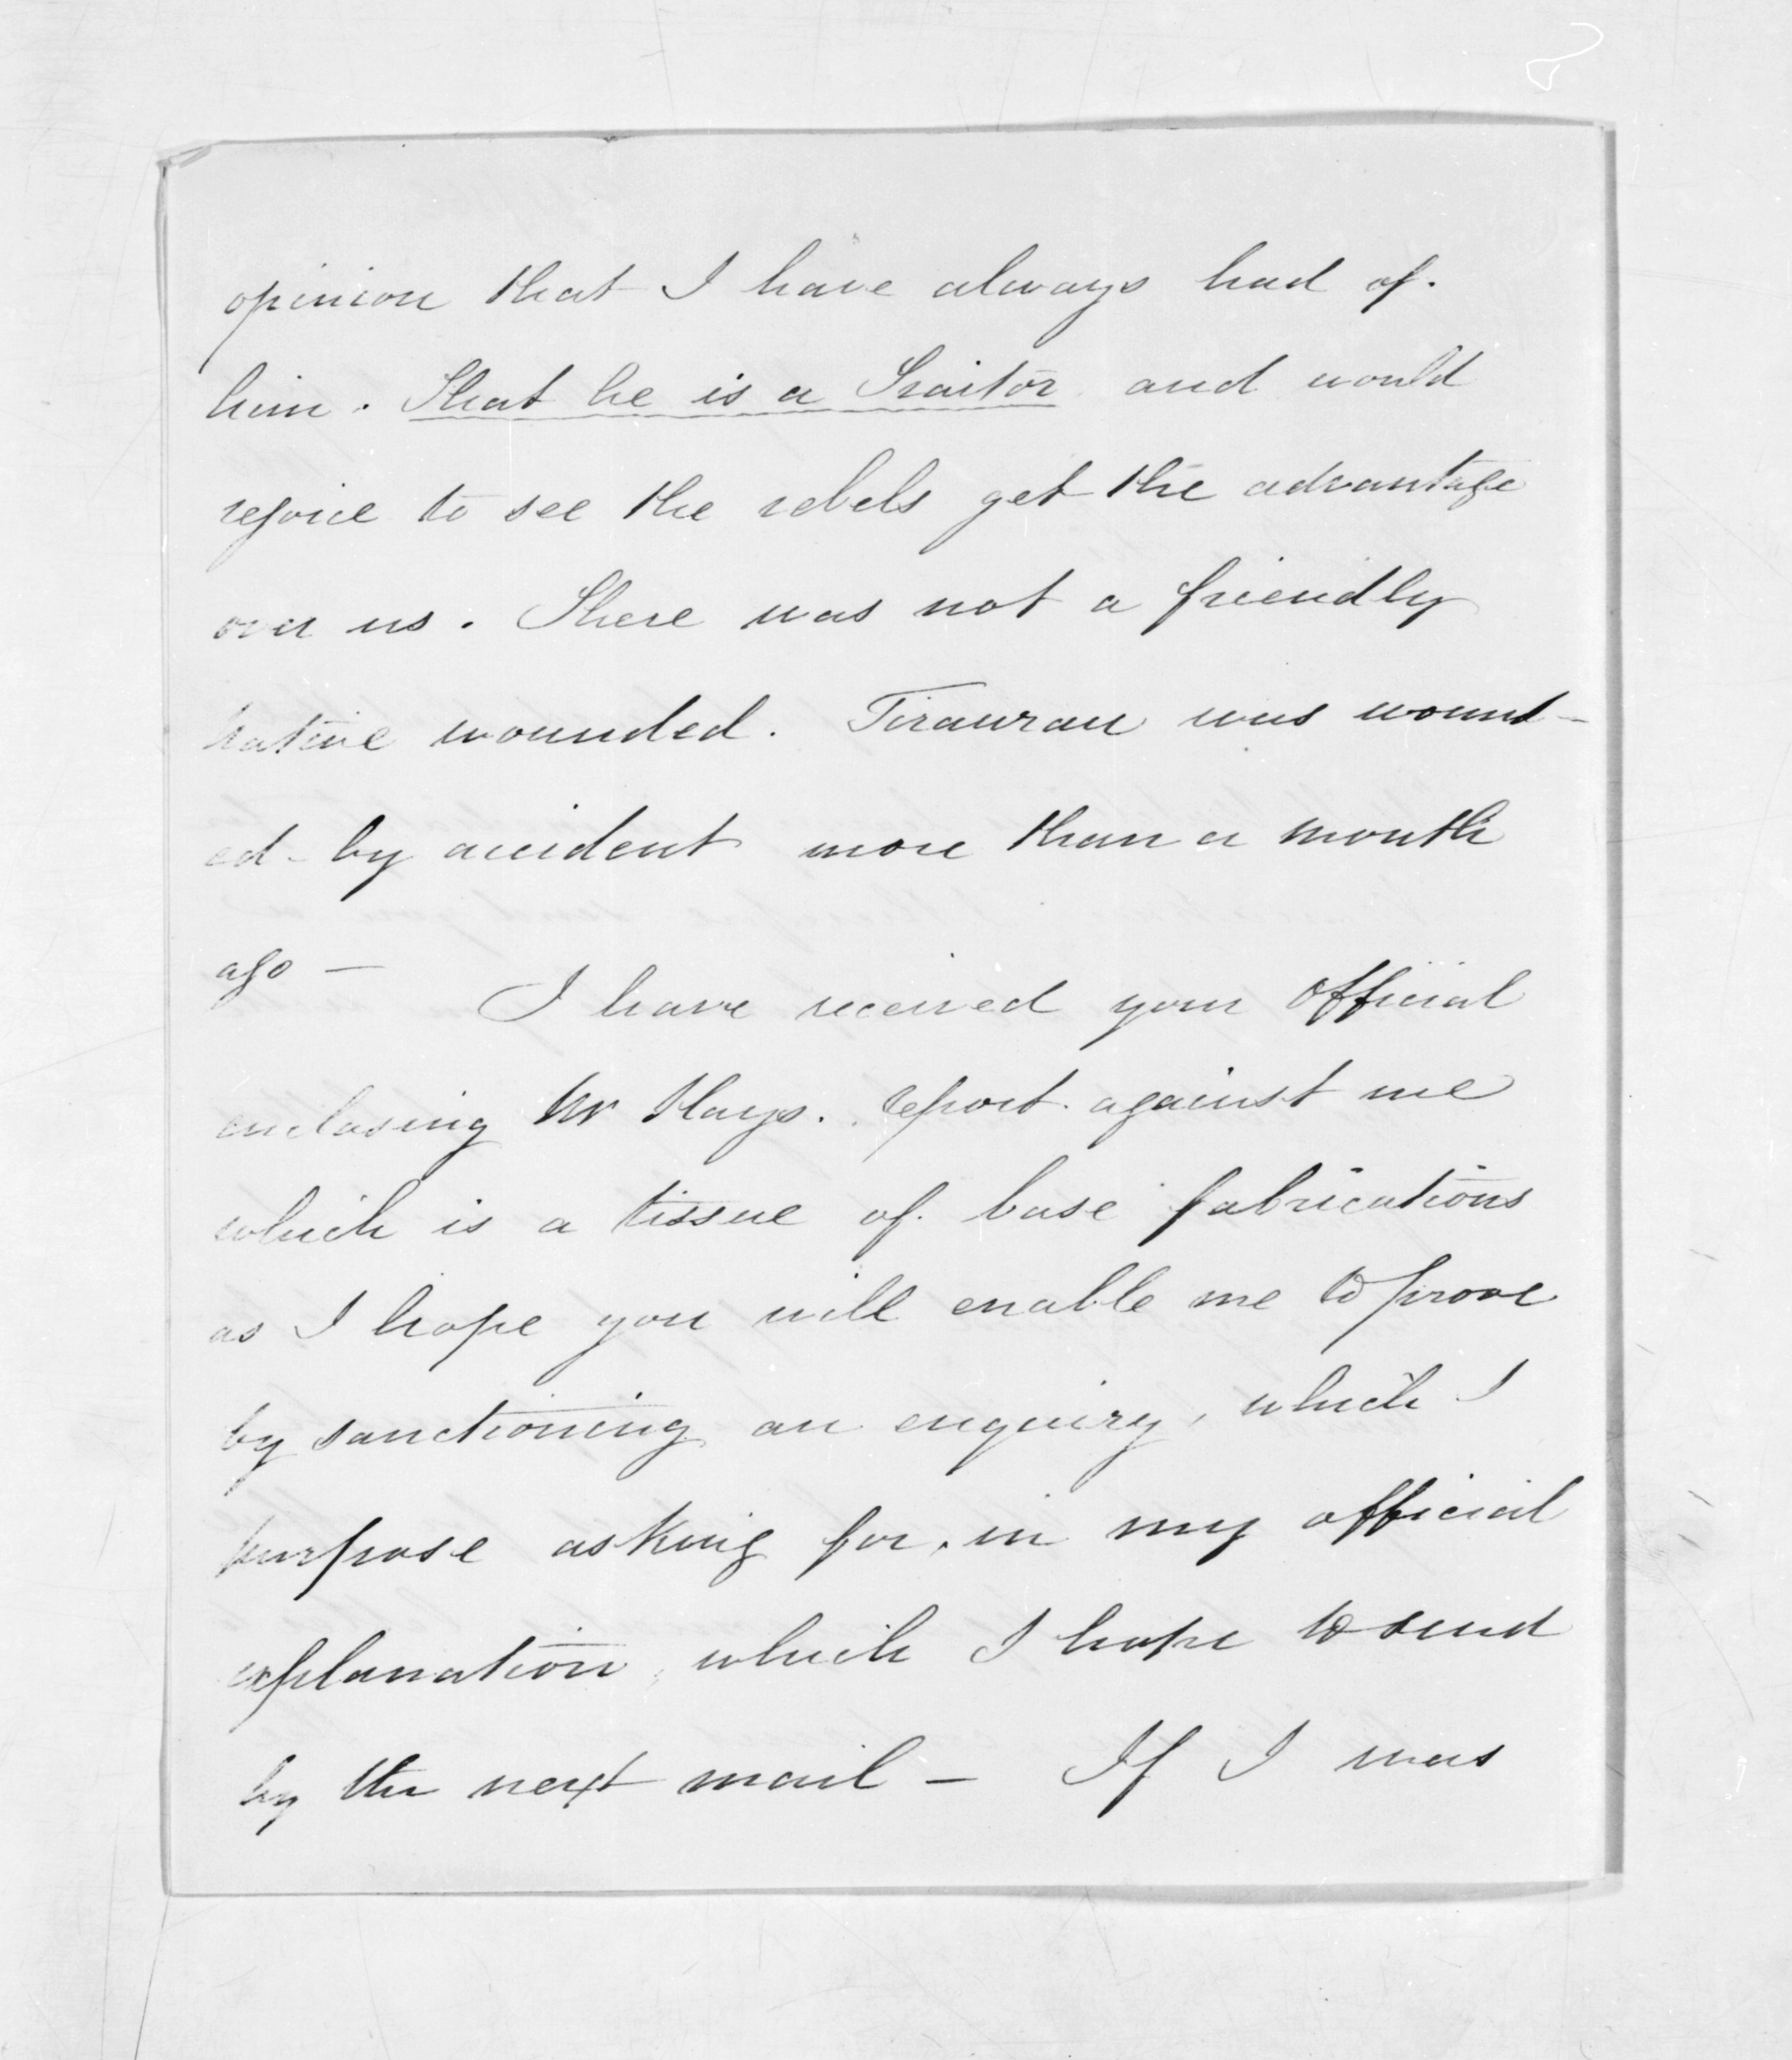 opinion that I have always had of.
him. That he is a Traitor and would
rejoice to see the rebels get the advantage
over us. There was not a friendly
native wounded. Tiraurau was wound-
ed - by accident more than a month
ago —
I have received your official
enclosing Mr Hays. report. against me
which is a tissue of. base fabrications
as I hope you will enable me to prove
by sanctioning an enquiry, which I
purpose asking for, in my official
explanation, which I hope to send
by the next mail — If I was